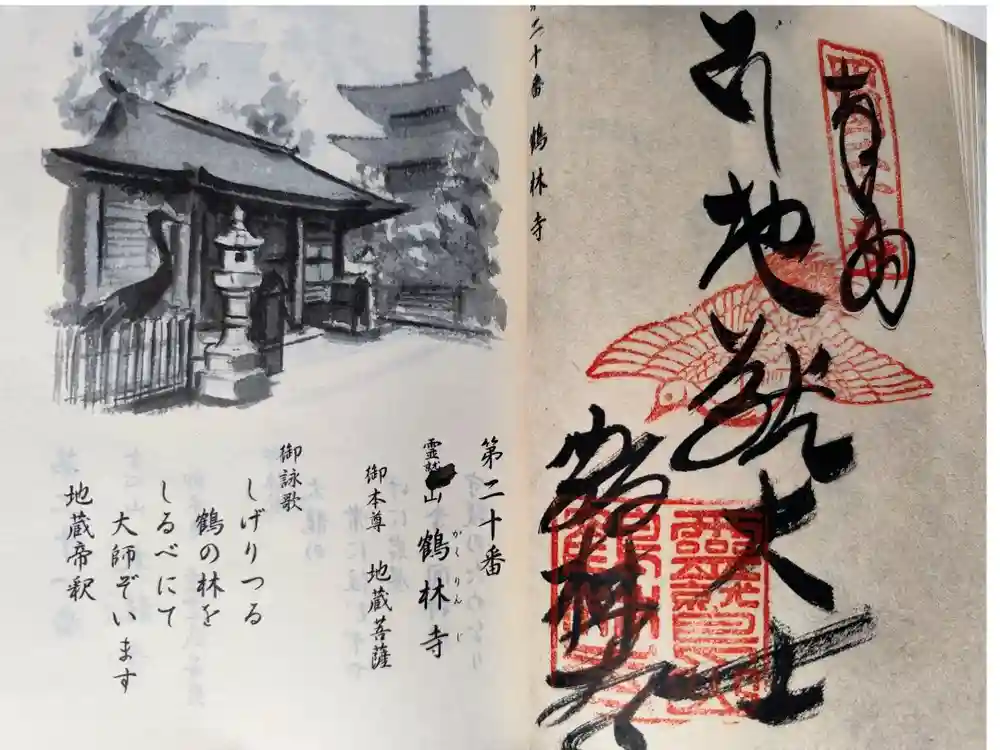 奉拝
地蔵大士
鶴林寺
第二十番 鶴林寺
第二十番
霊鷲山 鶴林寺
かくりんじ
御本尊 地蔵菩薩
御詠歌
しげりつる
鶴の林を
しるべにて
大師ぞいます
地蔵帝釈